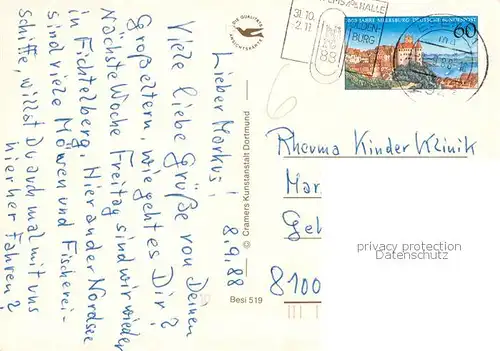 Lieber Markus!
8.9.88
Viele liebe Grüße von Deinen
Großeltern, wie geht es Dir?
Nächste Woche Freitag sind wir wieder
in Fichtelberg. Hier an der Nordsee
sind viele Möwen und Fischerei-
schiffe, willst Du auch mal mit uns
hierher fahren?
DIE QUALITÄTS
ANSICHTSKARTE
© Cramers Kunstanstalt Dortmund
Besi 519
31.10.
2.11.
88
MEERSBURG DEUTSCHE BUNDESPOST
60
Rheuma Kinder Klinik
Mar
Geh
8100
privacy protection
Datenschutz